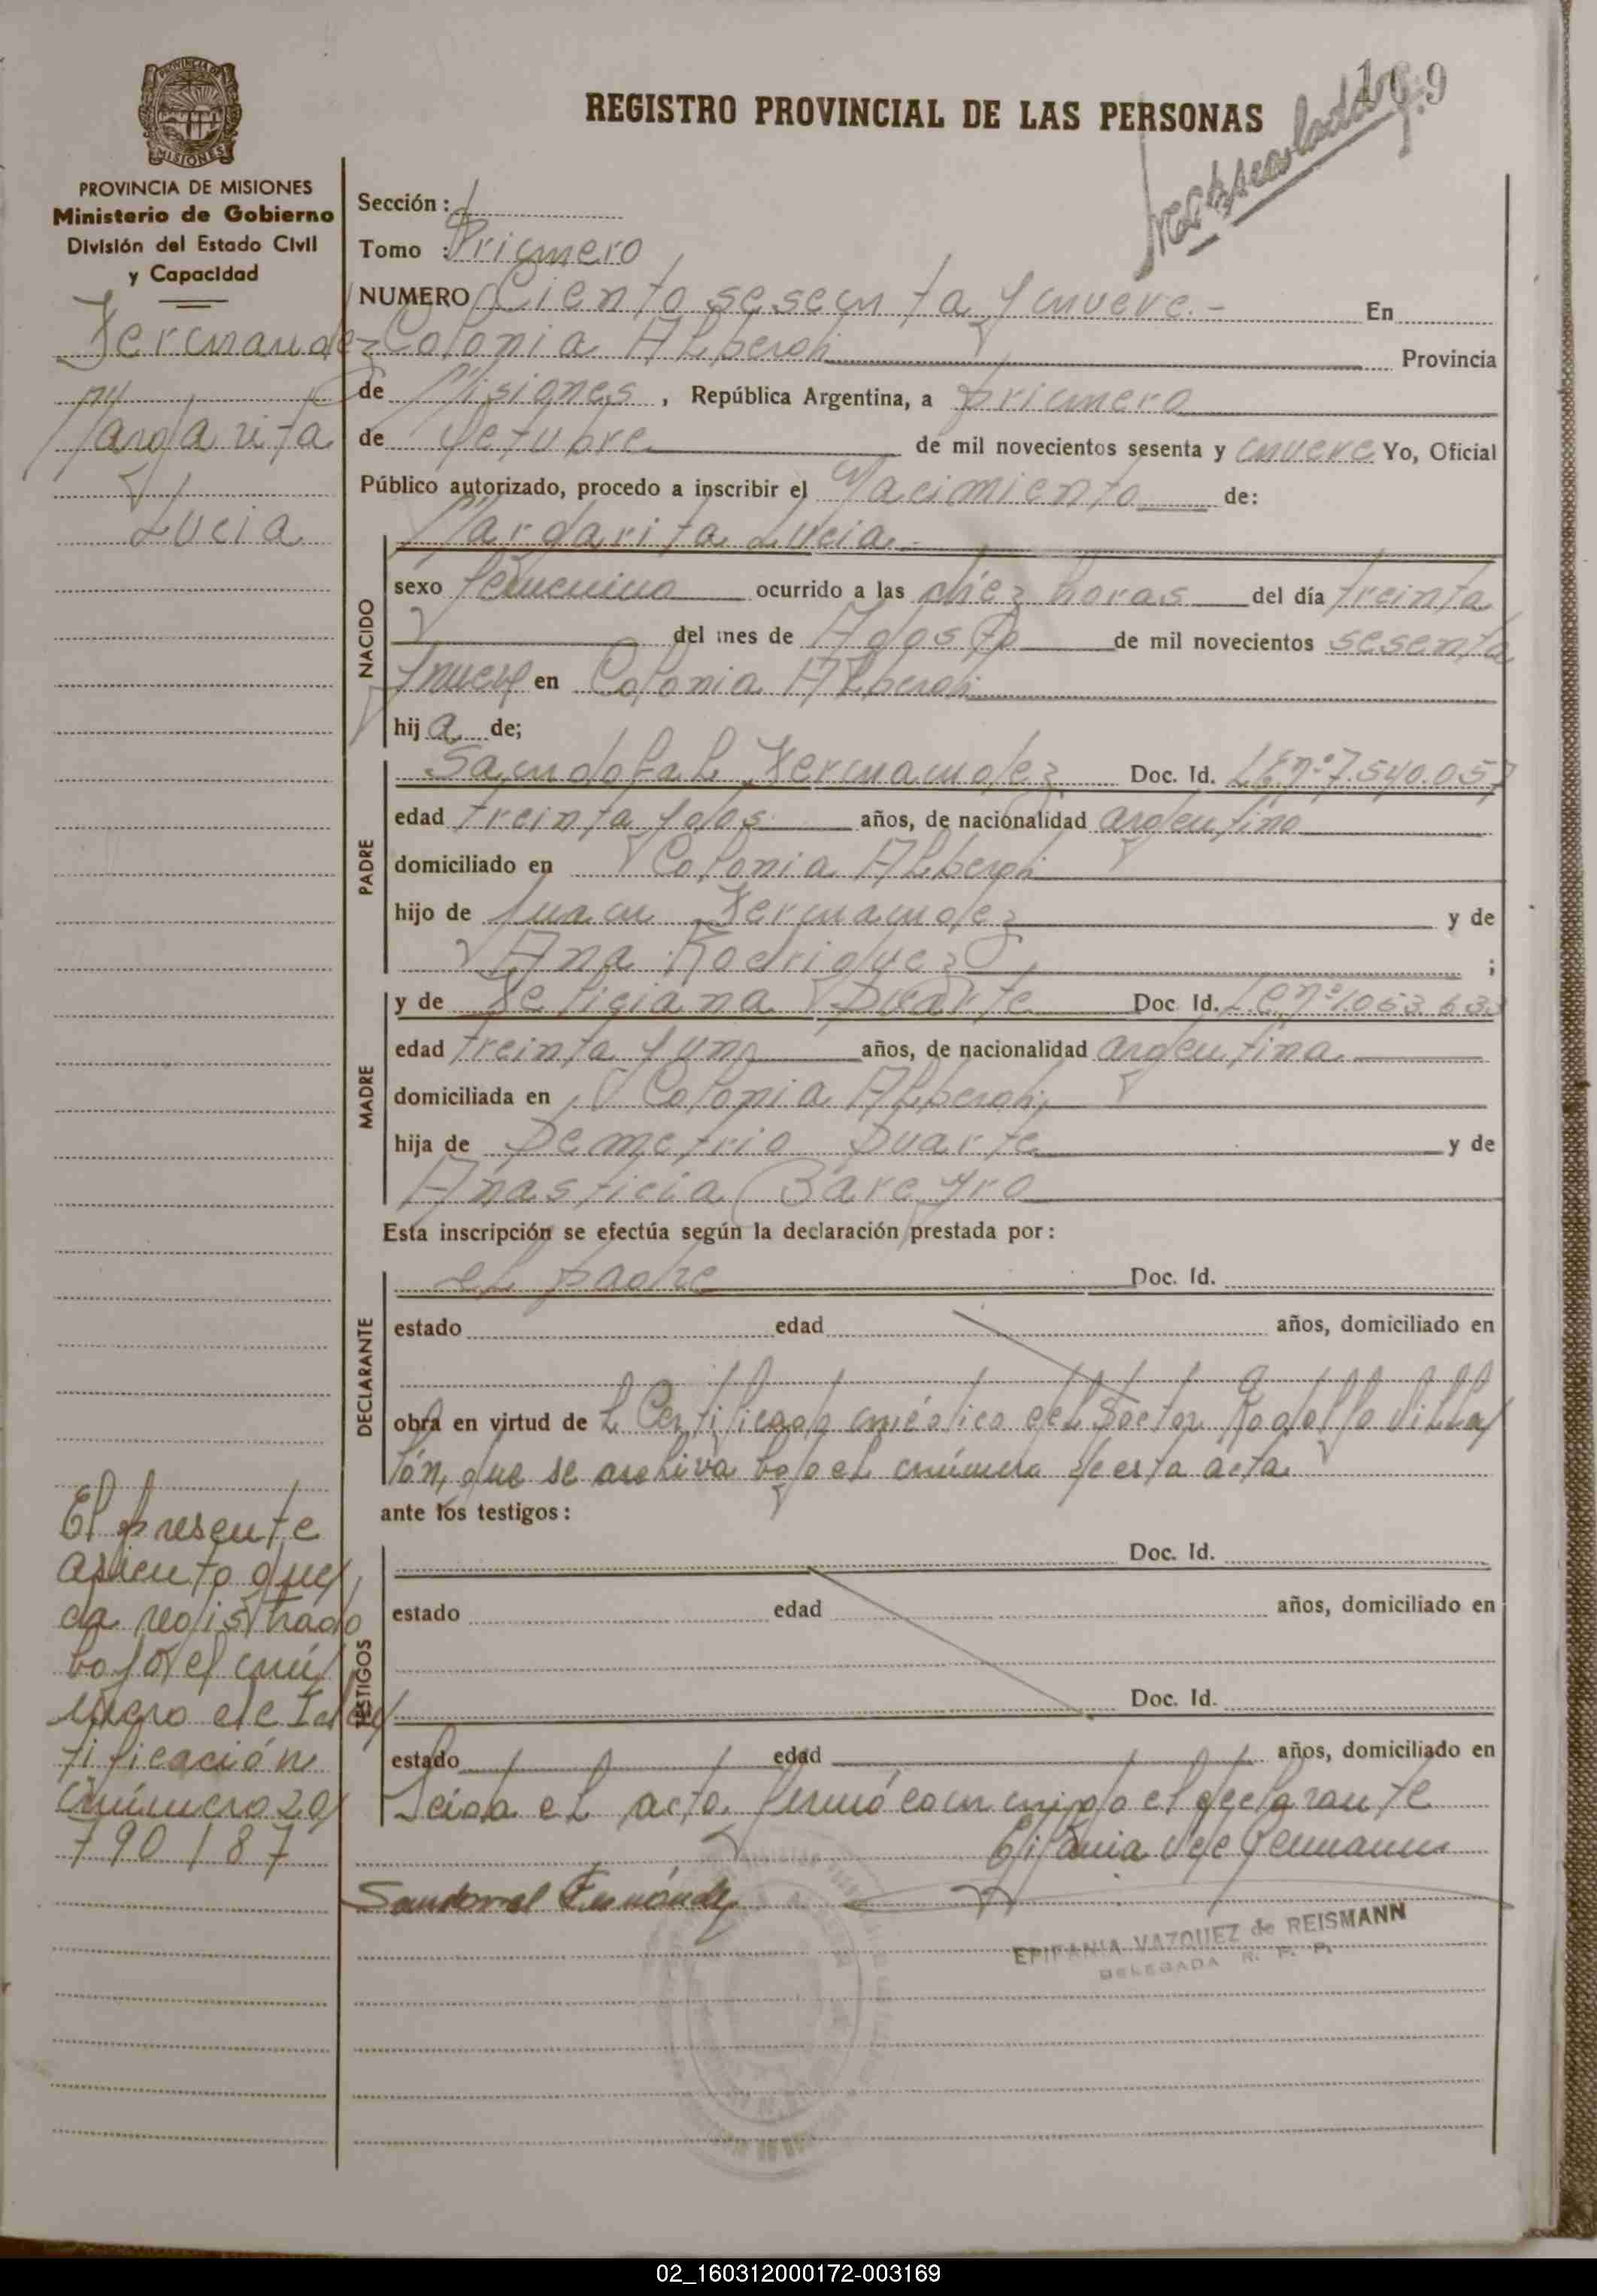 169
REGISTRO PROVINCIAL DE LAS PERSONAS
PROVINCIA DE MISIONES
MISIONES
PROVINCIA DE MISIONES
Ministerio de Gobierno
División del Estado Civil
y Capacidad
Fernandez
Margarita
Lucia
Sección :
Tomo : Primero
NUMERO Ciento sesenta y nueve.- En
Colonia Alberdi Provincia
de Misiones, República Argentina, a primero
de Octubre de mil novecientos sesenta y nueve Yo, Oficial
Público autorizado, procedo a inscribir el Nacimiento de:
NACIDO
Margarita Lucia.-
sexo femenino ocurrido a las diez horas del día treinta
del mes de Agosto de mil novecientos sesenta
y nueve en Colonia Alberdi
hija de;
PADRE
Sandobal Fernandez Doc. Id. LE nº 7.540.057
edad treinta y dos años, de nacionalidad argentino
domiciliado en Colonia Alberdi
hijo de Juan Fernandez y de
Ana Rodriguez ;
MADRE
y de Feliciana Duarte Doc Id. Lc nº 1.063.633
edad treinta y uno años, de nacionalidad argentina
domiciliada en Colonia Alberdi
hija de Demetrio Duarte y de
Anasticia Bareyro
Esta inscripción se efectúa según la declaración prestada por :
DECLARANTE
el padre Doc. Id.
estado edad años, domiciliado en
obra en virtud del Certificado médico del Doctor Rodolfo Villa
lón, que se archiva bajo el número de esta acta
ante los testigos :
TESTIGOS
Doc. Id.
estado edad años, domiciliado en
Doc. Id.
estado edad años, domiciliado en
Leida el acta firmó conmigo el declarante
Sandoval Fernández
EPIFANIA VAZQUEZ de REISMANN
DELEGADA R. P. P.
El presente
asiento que
da registrado
bajo el nú
mero de Iden
tificación
número 20
790187
02_160312000172-003169